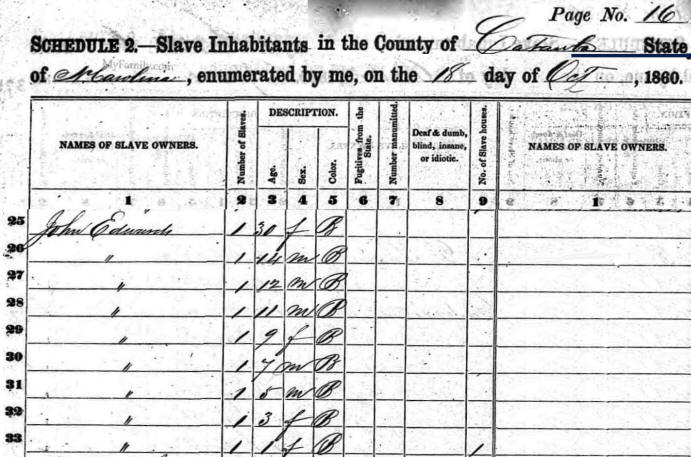 Page No. 16
SCHEDULE 2.—Slave Inhabitants in the County of Catawba State
MyFamily.com
of N. Carolina, enumerated by me, on the 18 day of Oct, 1860.
NAMES OF SLAVE OWNERS. Number of Slaves. DESCRIPTION. Age. Sex. Color. Fugitives from the State. Number manumitted. Deaf & dumb, blind, insane, or idiotic. No. of Slave houses. NAMES OF SLAVE OWNERS.
1 2 3 4 5 6 7 8 9 1
25 John Edwards 1 30 f B
26 " 1 14 m B
27 " 1 12 m B
28 " 1 11 m B
29 " 1 9 f B
30 " 1 7 m B
31 " 1 5 m B
32 " 1 3 f B
33 " 1 1 f B 1